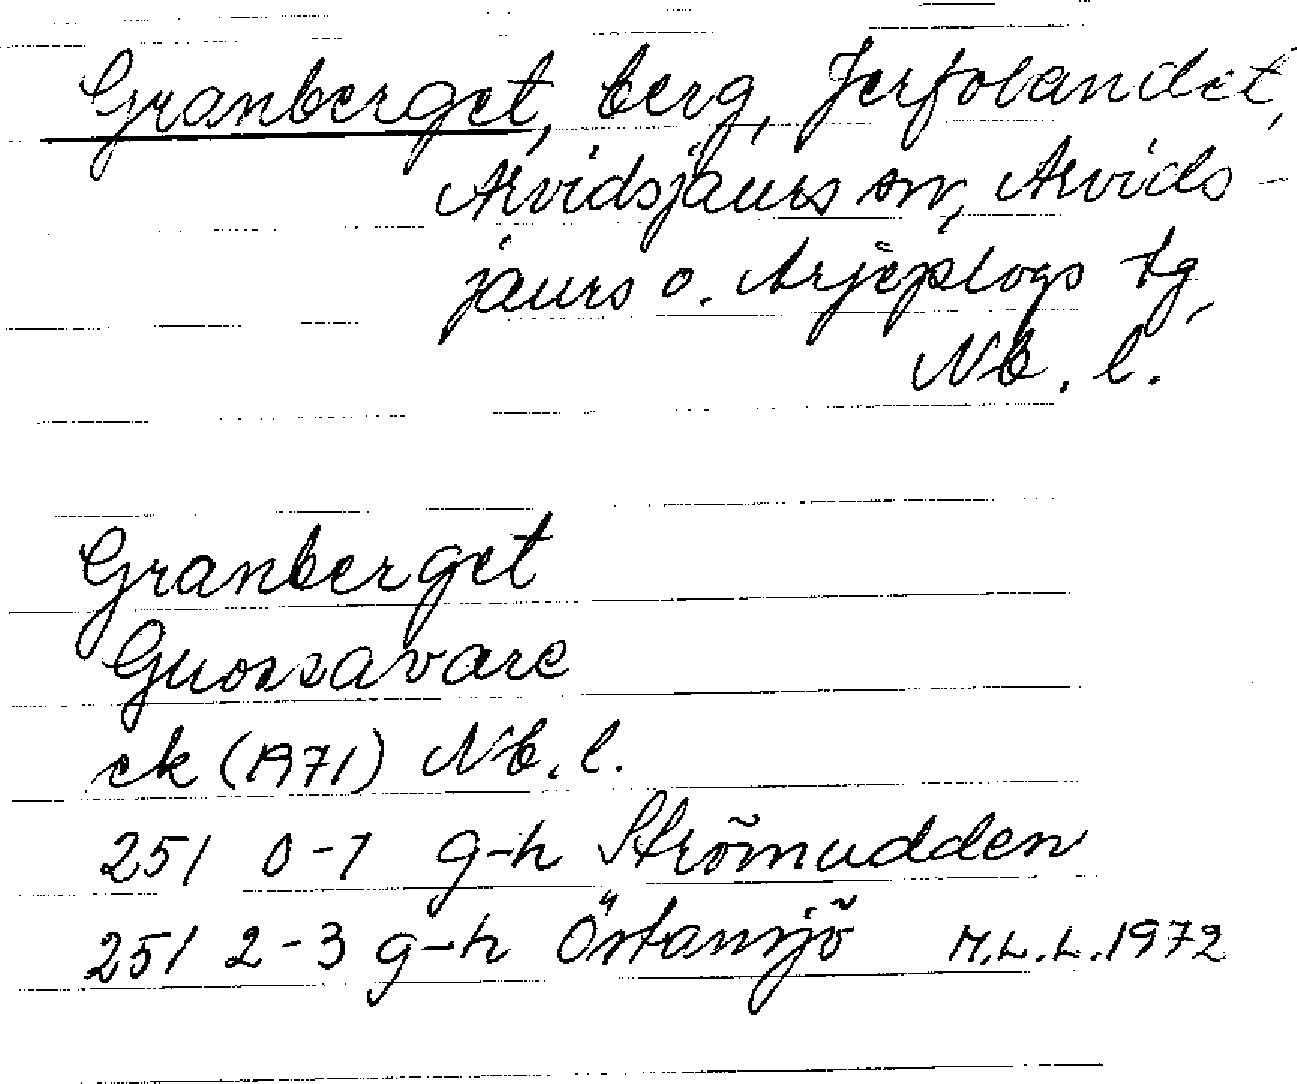 Granberget, berg, Jerfolandet,
Arvidsjaurs sn, Arvids-
jaurs o. Arjeplogs tg,
Nb. l.
Granberget
Guossavare
ek (1971) Nb. l.
251 0-1 g-h Strömudden
251 2-3 g-h Östansjö M.L.L. 1972